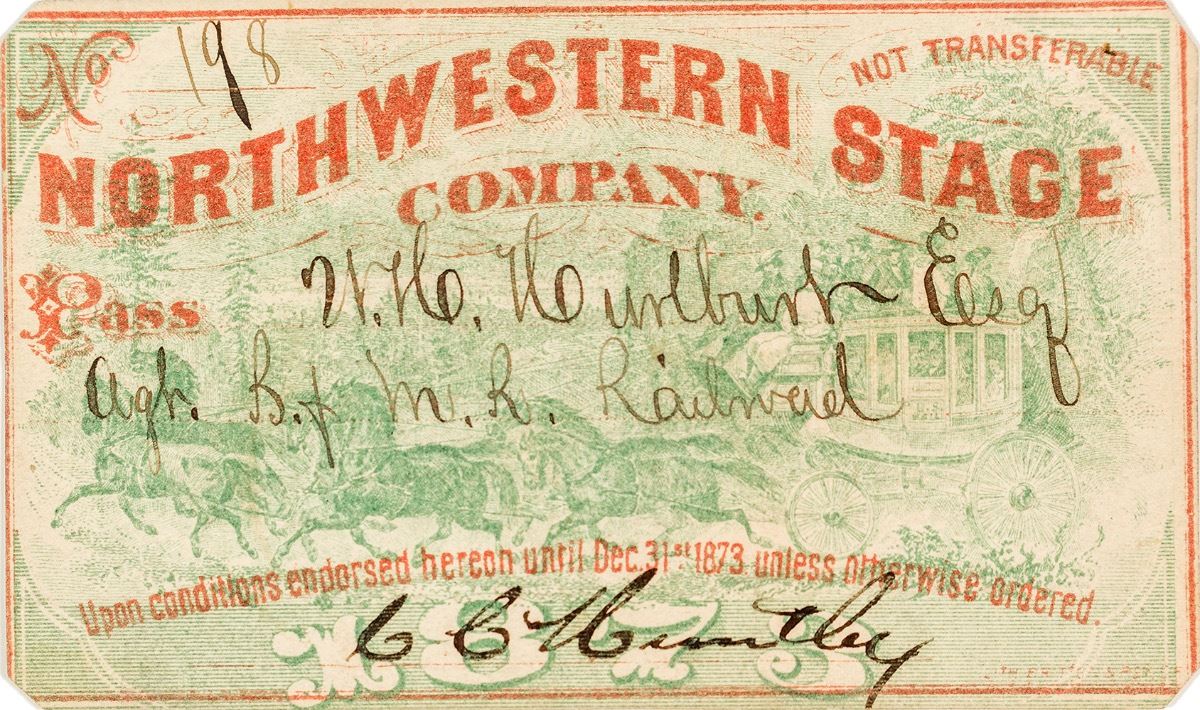 No 198
NOT TRANSFERABLE
NORTHWESTERN STAGE
COMPANY.
Pass W. H. Hurlburt Esq
Agt. B. & M. R. Railroad
Upon conditions endorsed hereon until Dec. 31st 1873. unless otherwise ordered.
C C Huntley
1873